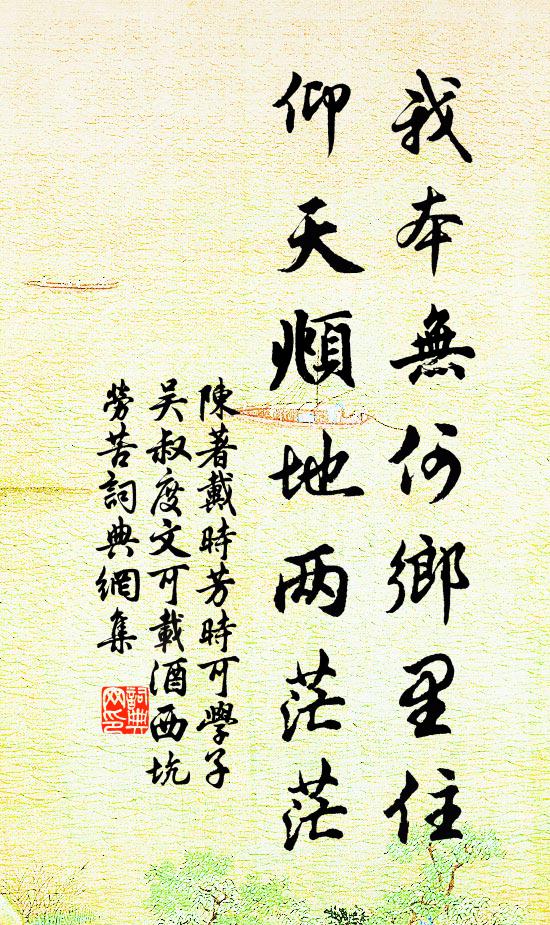 我本無何鄉里住
仰天頫地两茫茫
陳著戴時芳時可學子
吴叔度文可載酒西坑
勞苦詞典網集
詞典
网印